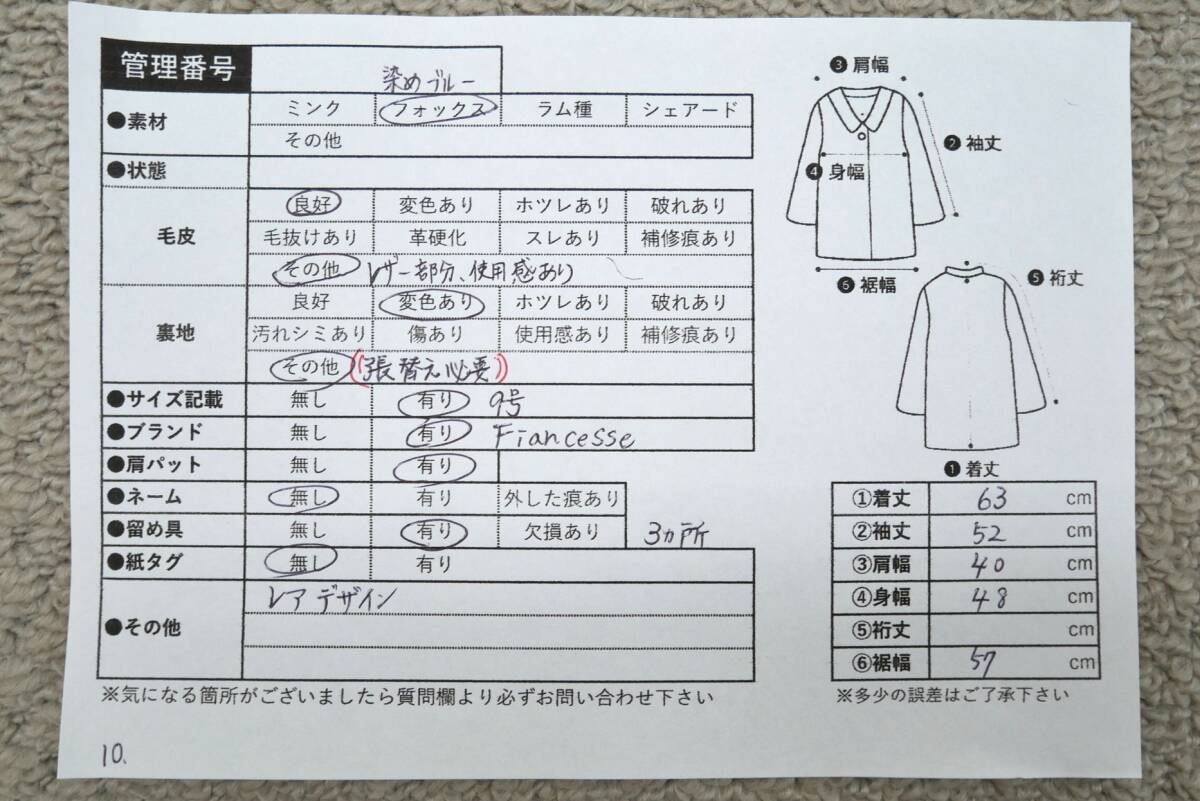 管理番号
染めブルー
●素材 ミンク フォックス ラム種 シェアード
その他
●状態
毛皮 良好 変色あり ホツレあり 破れあり
毛抜けあり 革硬化 スレあり 補修痕あり
その他 レザー部分、使用感あり
裏地 良好 変色あり ホツレあり 破れあり
汚れシミあり 傷あり 使用感あり 補修痕あり
その他 (張替え必要)
●サイズ記載 無し 有り 9号
●ブランド 無し 有り Fiancesse
●肩パット 無し 有り
●ネーム 無し 有り 外した痕あり
●留め具 無し 有り 欠損あり 3ヵ所
●紙タグ 無し 有り
●その他 レアデザイン
※気になる箇所がございましたら質問欄より必ずお問い合わせ下さい
10、
❸肩幅
❷袖丈
❹身幅
❻裾幅
❺裄丈
❶着丈
①着丈 63 cm
②袖丈 52 cm
③肩幅 40 cm
④身幅 48 cm
⑤裄丈 cm
⑥裾幅 57 cm
※多少の誤差はご了承下さい